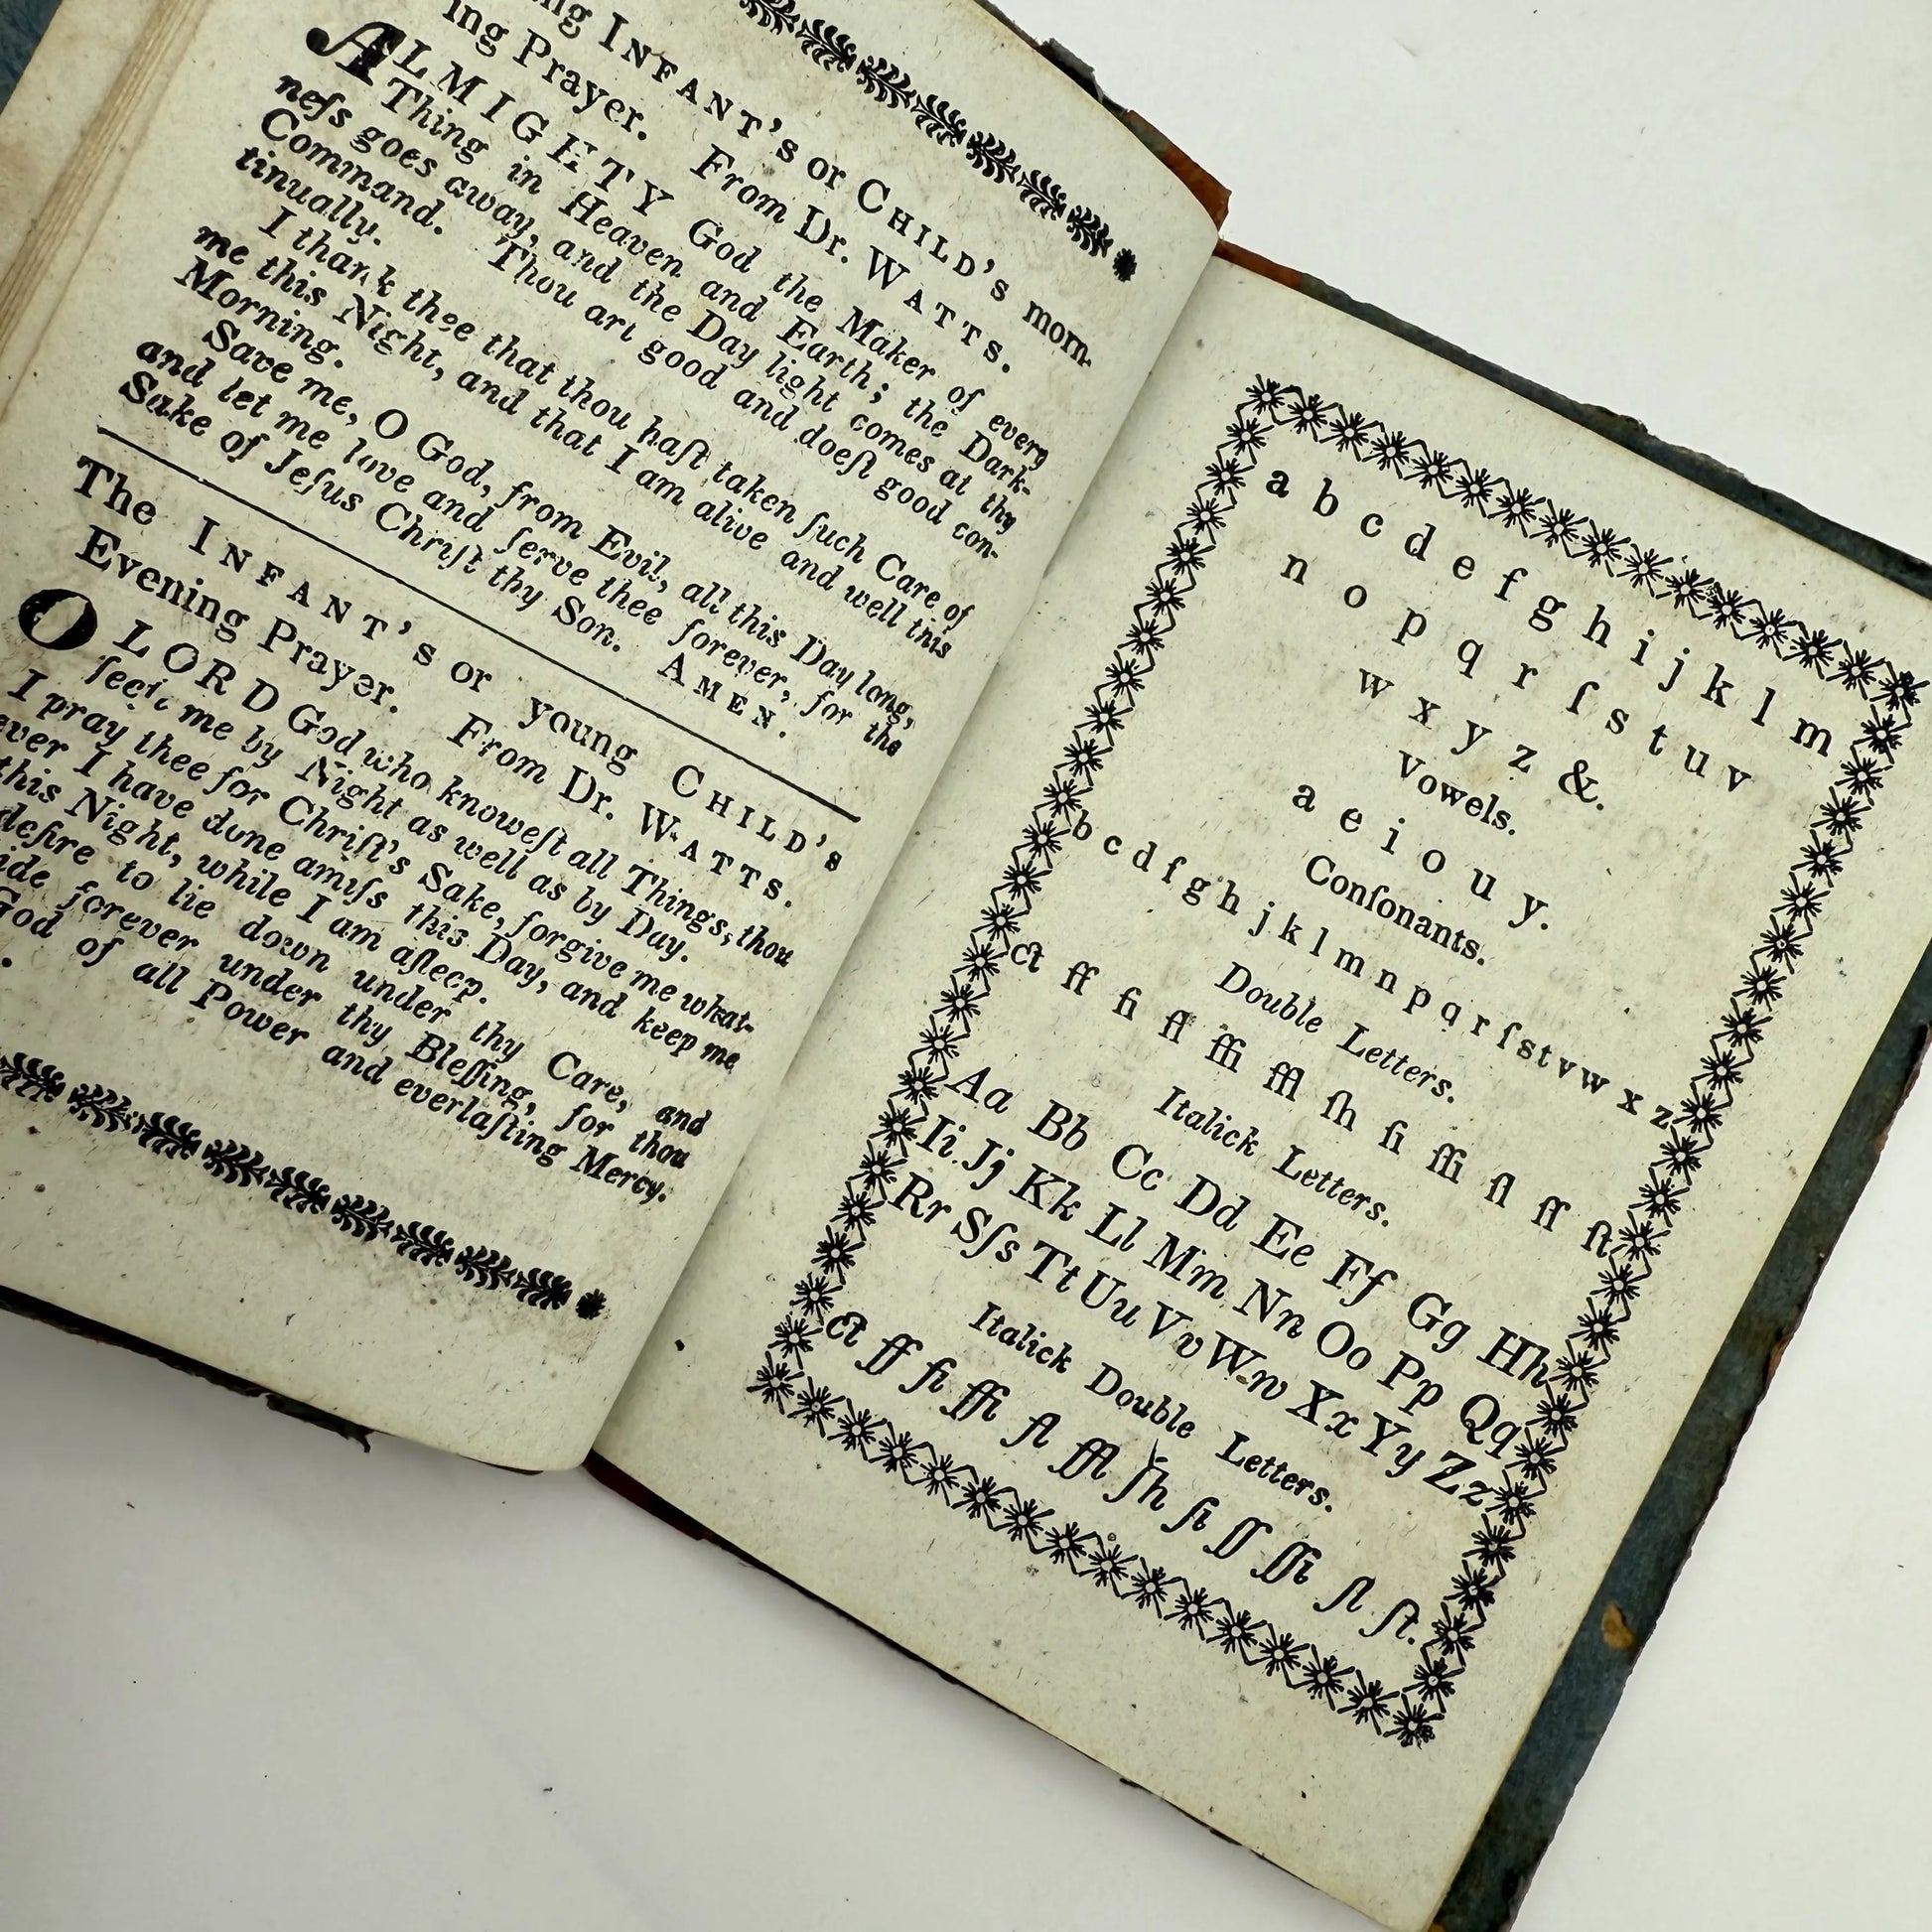 ng INFANT's or CHILD's morn-
ing Prayer. From Dr. WATTS.
ALMIGHTY God the Maker of every
Thing in Heaven and Earth; the Dark-
neſs goes away, and the Day light comes at thy
Command. Thou art good and doeſt good con-
tinually.
I thank thee that thou haſt taken ſuch Care of
me this Night, and that I am alive and well this
Morning.
Save me, O God, from Evil, all this Day long,
and let me love and ſerve thee forever, for the
Sake of Jeſus Chriſt thy Son. AMEN.
The INFANT's or young CHILD's
Evening Prayer. From Dr. WATTS.
O LORD God who knoweſt all Things, thou
ſeeſt me by Night as well as by Day.
I pray thee for Chriſt's Sake, forgive me what-
ever I have done amiſs this Day, and keep me
this Night, while I am aſleep.
deſire to lie down under thy Care, and
ide forever under thy Bleſſing, for thou
God of all Power and everlaſting Mercy.
a b c d e f g h i j k l m
n o p q r ſ s t u v
w x y z &.
Vowels.
a e i o u y.
Conſonants.
b c d f g h j k l m n p q r ſ s t v w x z
Double Letters.
ct ff fi fl ffi ffl ſh ſi ſſi ſl ſſ ſt
Italick Letters.
Aa Bb Cc Dd Ee Ff Gg Hh
Ii Jj Kk Ll Mm Nn Oo Pp Qq
Rr Sſs Tt Uu Vv Ww Xx Yy Zz
Italick Double Letters.
ct ff fi ffi fl ffl ſh ſi ſſ ſſi ſl ſt.